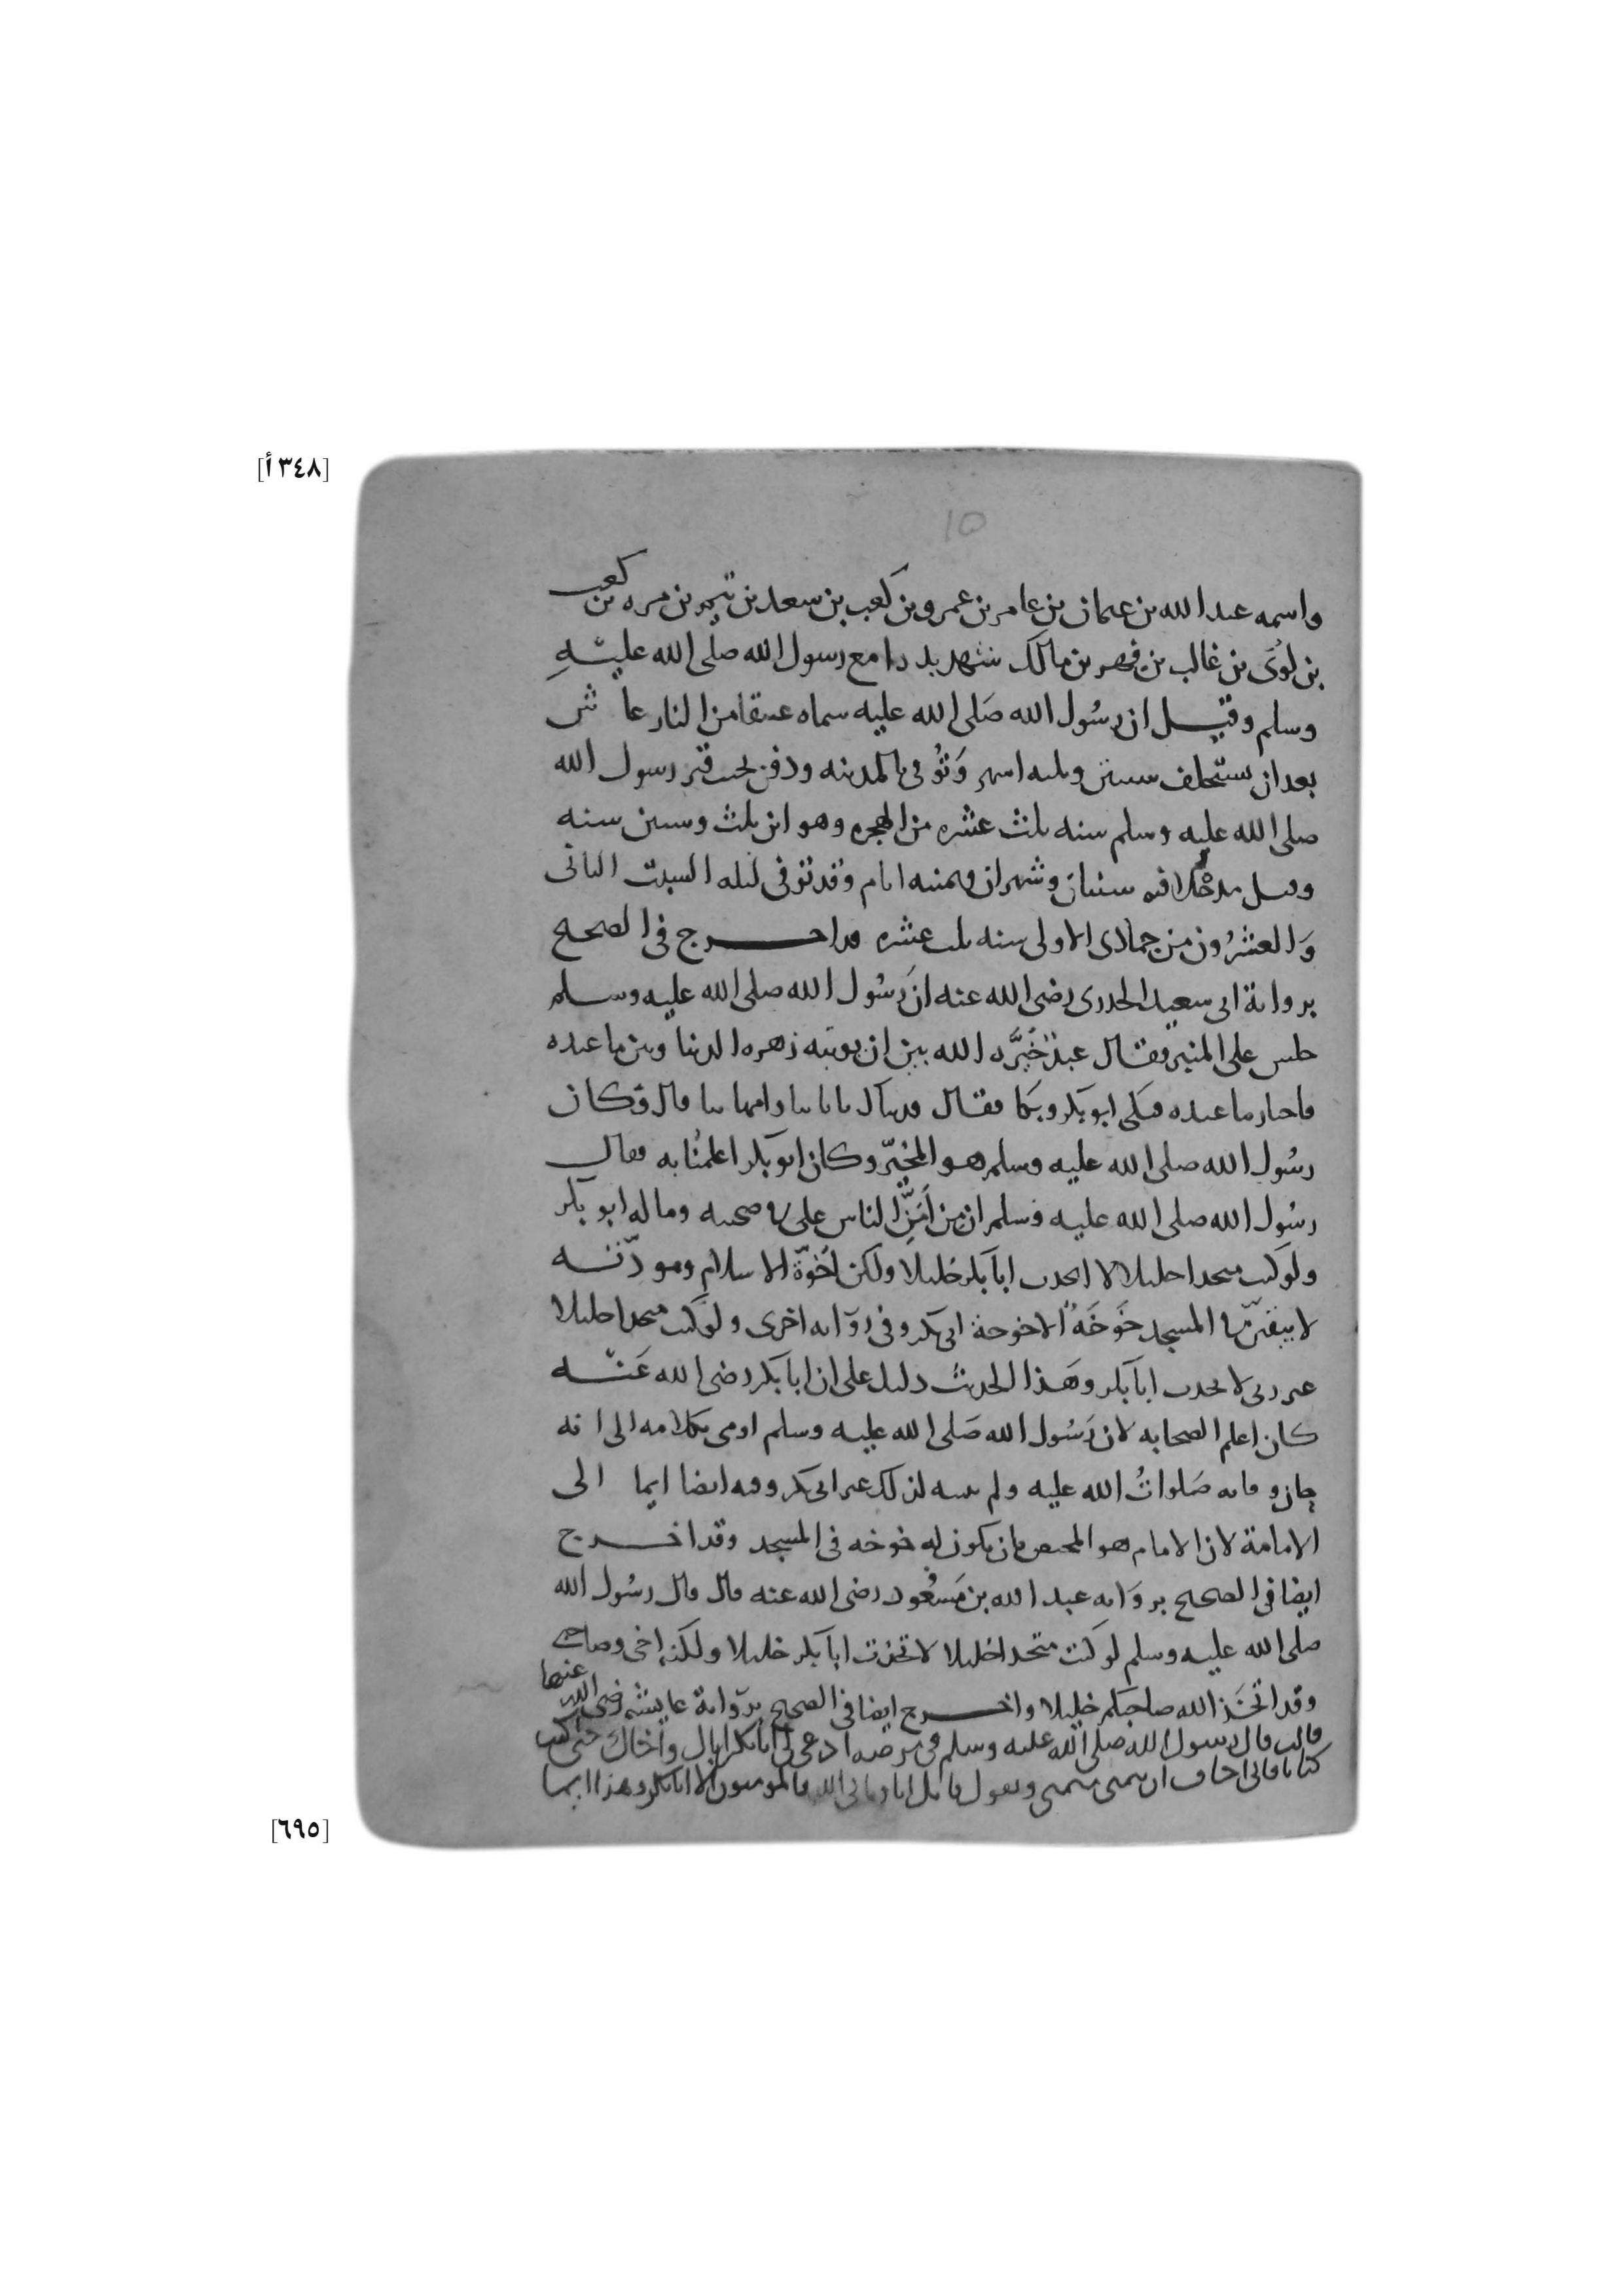 [٣٤٨ أ]
10
واسمه عبد الله بن عثمان بن عامر بن عمرو بن كعب بن سعد بن تيم بن مره بن كعب
بن لؤى بن غالب بن فهر بن مالك شهد بدرا مع رسول الله صلى الله عليه
وسلم وقيل ان رسول الله صلى الله عليه سماه عتيقا من النار عاش
بعد ان ستخلف سنتين وثلثه اشهر وتوفى بالمدينه ودفن بجنب قبر رسول الله
صلى الله عليه وسلم سنه ثلث عشره من الهجره وهو ابن ثلث وستين سنه
وقيل مده خلافته سنتان وشهران وثمنيه ايام وقد توفى ليله السبت الثانى
والعشرون من جمادى الاولى سنه ثلث عشره قد اخرج فى الصحيح
برواية ابى سعيد الخدرى رضى الله عنه ان رسول الله صلى الله عليه وسلم
جلس على المنبر فقال عبد خيره الله بين ان يوتيه زهره الدنيا وبين ما عنده
فاختار ما عنده فبكى ابو بكر وبكا فقال فديناك باباينا وامهاتنا قال فكان
رسول الله صلى الله عليه وسلم هو المخير وكان ابو بكر اعلمنا به فقال
رسول الله صلى الله عليه وسلم ان من امن الناس على فى صحبته وماله ابو بكر
ولو كنت متخذا خليلا لاتخذت ابا بكر خليلا ولكن اخوة الاسلام ومودته
لا يبقين فى المسجد خوخة الا خوخة ابى بكر وفى روايه اخرى ولو كنت متخذا خليلا
غير ربى لاتخذت ابا بكر وهذا الحديث دليل على ان ابا بكر رضى الله عنه
كان اعلم الصحابه لان رسول الله صلى الله عليه وسلم اومى بكلامه الى انه
صلوات الله عليه ولم ينتبه لذلك غير ابى بكر وفيه ايضا ايما الى
الامامة لان الامام هو المختص بان يكون له خوخه فى المسجد وقد اخرج
ايضا فى الصحيح بروايه عبد الله بن مسعود رضى الله عنه قال قال رسول الله
صلى الله عليه وسلم لو كنت متخذا خليلا لاتخذت ابا بكر خليلا ولكنه اخى وصاحبى
وقد اتخذ الله صاحبكم خليلا واخرج ايضا فى الصحيح برواية عايشه رضى الله عنها
قالت قال رسول الله صلى الله عليه وسلم فى مرضه ادعى لى ابا بكر اباك واخاك حتى اكتب
كتابا فانى اخاف ان يتمنى متمنى ويقول قايل انا ويابى الله والمومنون الا ابا بكر وهذا ايما
[٦٩٥]